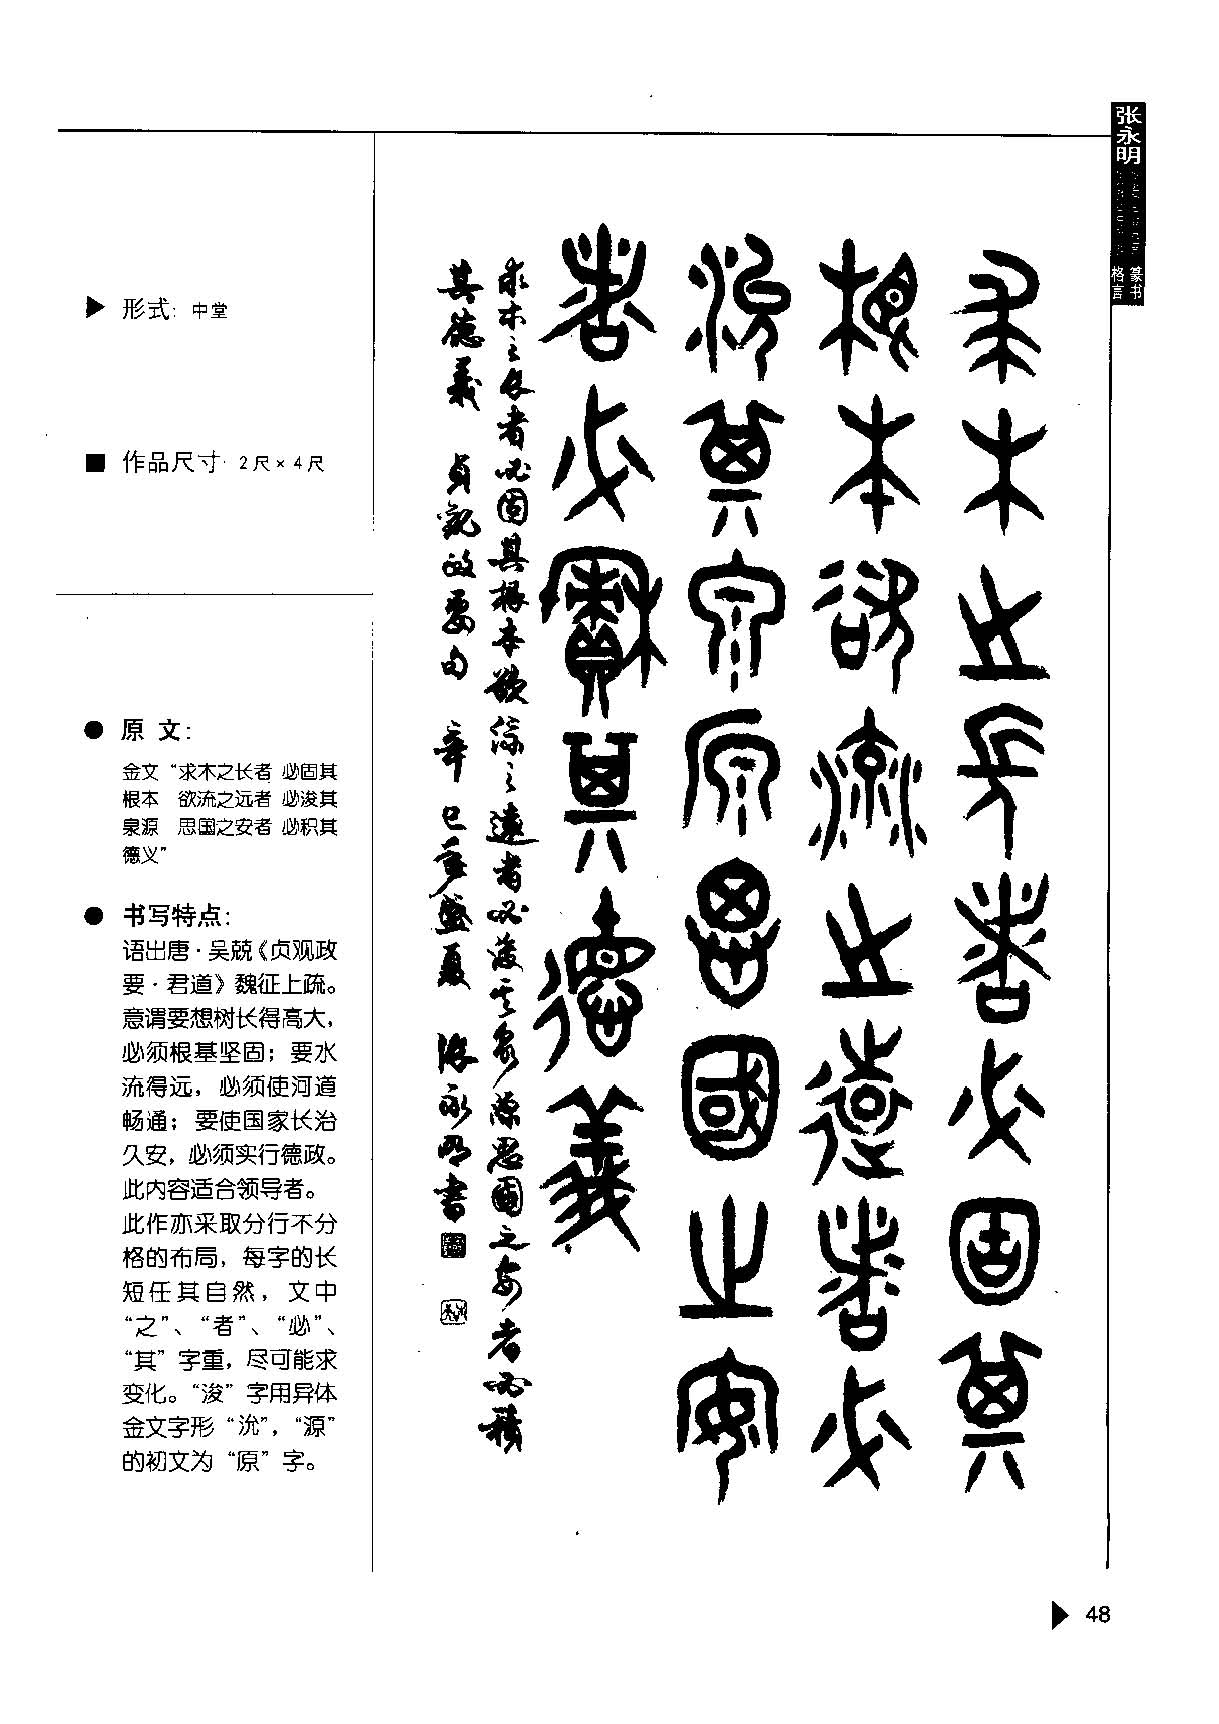 张永明
篆书
格言
形式: 中堂
作品尺寸: 2尺×4尺
原 文:
金文“求木之长者 必固其
根本 欲流之远者 必浚其
泉源 思国之安者 必积其
德义”
书写特点:
语出唐·吴兢《贞观政
要·君道》魏征上疏。
意谓要想树长得高大，
必须根基坚固；要水
流得远，必须使河道
畅通；要使国家长治
久安，必须实行德政。
此内容适合领导者。
此作亦采取分行不分
格的布局，每字的长
短任其自然，文中
“之”、“者”、“必”、
“其”字重，尽可能求
变化。“浚”字用异体
金文字形“沇”，“源”
的初文为“原”字。
求木之长者必固其
根本欲流之远者必
浚其泉原思国之安
者必积其德义
求木之长者必固其根本欲流之远者必浚其泉源思国之安者必积
其德义 贞观政要句 辛巳年盛夏 张永明书
48